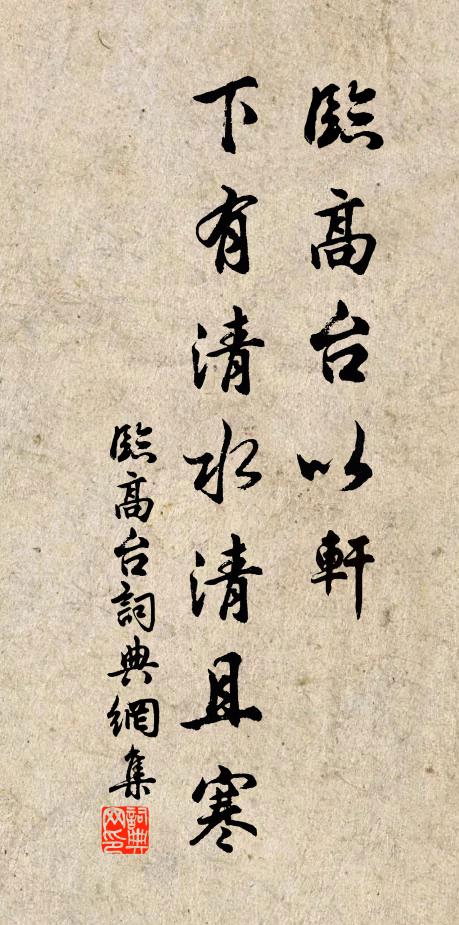 臨高台以軒
下有清水清且寒
臨高台詞典網集
詞典網印